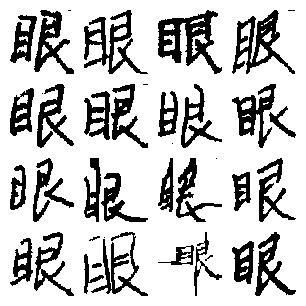 眼眼眼眼
眼眼眼眼
眼眼眼眼
眼眼眼眼